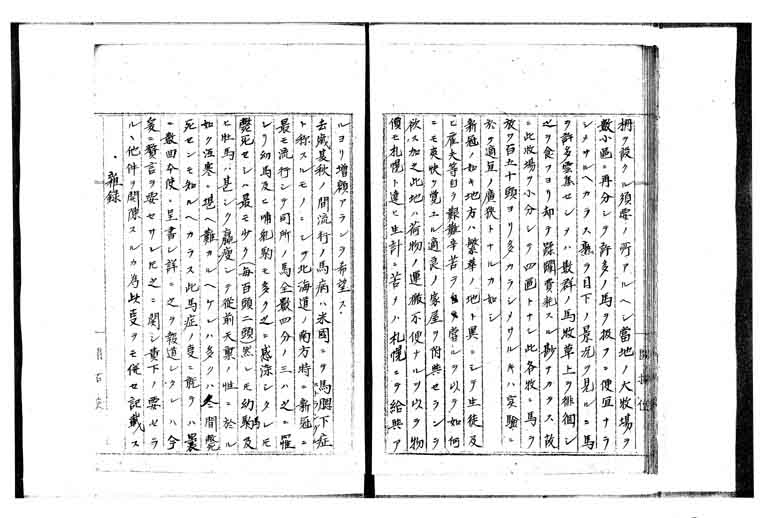 柵ヲ設クル須要ノ所アルヘシ當地ノ大牧場ヲ
數小區ニ再分シテ許多ノ馬ヲ扱フニ便宜ナラ
シメサルヘカラス熟ラ目下ノ景況ヲ見ルニ馬
ヲ許多雲集セシヲハ散群ノ馬牧草上ヲ徘徊シ
之ヲ食フヨリ却テ蹂躙費耗スル尠ナカラス故
ニ此牧場ヲ小分シテ四區トナシ此各牧ニ馬ヲ
放ツ百五十頭ヨリ多カラシメサルキハ実驗ニ
於テ適宜ノ廣狹トナルカ如シ
新冠ノ如キ地方ハ繁華ノ地ト異ニシテ生徒及
ヒ雇夫等自ラ艱難辛苦ヲ嘗ルヲ以テ如何
ニモ爽快ヲ覚エル適良ノ家屋ヲ附與セラレン
欲ス加之此地ハ荷物ノ運搬不便ナルヲ以テ物
價モ札幌ト違ヒ生計ニ苦ケハ札幌ニテ給與ア
ルヨリ増額アランヲ希望ス
去歳晩秋ノ間流行ノ馬病ハ米國ニテ馬腺下症
ト称スルモノニシテ北海道ノ南方時ニ新冠ニ
最モ流行シテ同所ノ馬全数四分ノ三ハ之ニ罹
レリ幼馬及ヒ哺乳駒モ多ク之ニ感染シタレモ
斃死セシハ最モ少ク(毎百頭二頭)然レモ幼駒及
ヒ牡馬ハ甚シク羸瘦シテ從前天禀ノ性ニ於ル
如ク冱寒ニ堪ヘ難カルヘケレハ多クハ冬間斃
死センモ知ルヘカラス此馬症ノ変ニ就テハ曩
ニ數回今使ニ呈書シ詳ニ之ヲ報道シタレハ今
爰ニ贅言ヲ要セサレモ之ニ関シ貴下ノ要セラ
ルヽ他件ヲ開陳スルカ為此ニ隻ヲモ併セ記載ス
雑録
開拓使